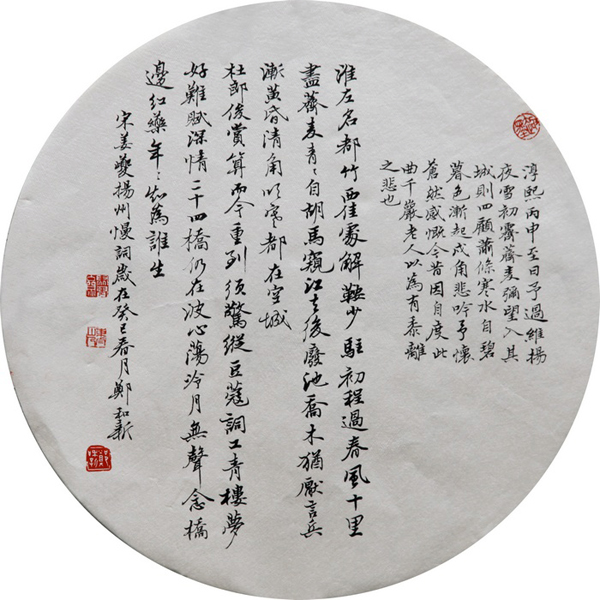 淳熙丙申至日予過維揚
夜雪初霽薺麥彌望入其
城則四顧蕭條寒水自碧
暮色漸起戍角悲吟予懷
蒼然感慨今昔因自度此
曲千巖老人以為有黍離
之悲也
淮左名都竹西佳處解鞍少駐初程過春風十里
盡薺麥青々自胡馬窺江去後廢池喬木猶厭言兵
漸黃昏清角吹寒都在空城
杜郎俊賞算而今重到須驚縱豆蔻詞工青樓夢
好難賦深情二十四橋仍在波心蕩冷月無聲念橋
邊紅藥年々知為誰生
宋姜夔揚州慢詞歲在癸巳春月鄭和新